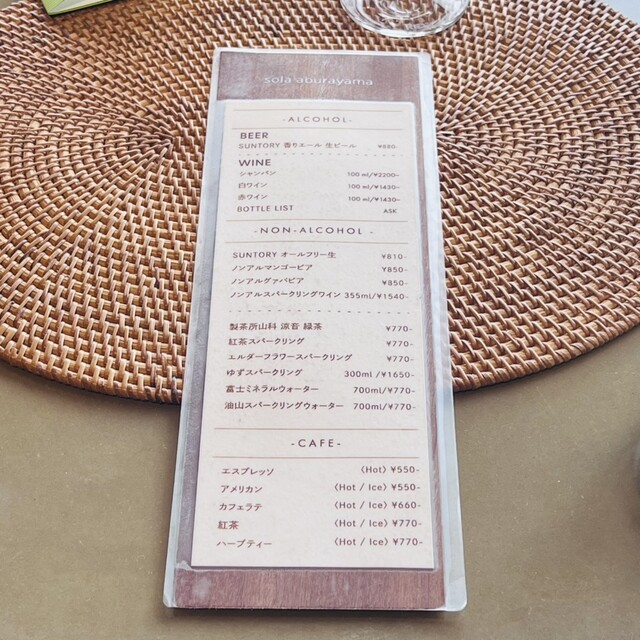 sola aburayama
-ALCOHOL-
BEER
SUNTORY 香りエール 生ビール ¥880-
WINE
シャンパン 100 ml/¥2200-
白ワイン 100 ml/¥1430-
赤ワイン 100 ml/¥1430-
BOTTLE LIST ASK
-NON-ALCOHOL -
SUNTORY オールフリー生 ¥810-
ノンアルマンゴービア ¥850-
ノンアルグァバビア ¥850-
ノンアルスパークリングワイン 355ml/¥1540-
製茶所山科 涼音 緑茶 ¥770-
紅茶スパークリング ¥770-
エルダーフラワースパークリング ¥770-
ゆずスパークリング 300ml /¥1650-
富士ミネラルウォーター 700ml/¥770-
油山スパークリングウォーター 700ml/¥770-
-CAFE-
エスプレッソ 〈Hot〉¥550-
アメリカン 〈Hot / Ice〉¥550-
カフェラテ 〈Hot / Ice〉¥660-
紅茶 〈Hot / Ice〉¥770-
ハーブティー 〈Hot / Ice〉¥770-